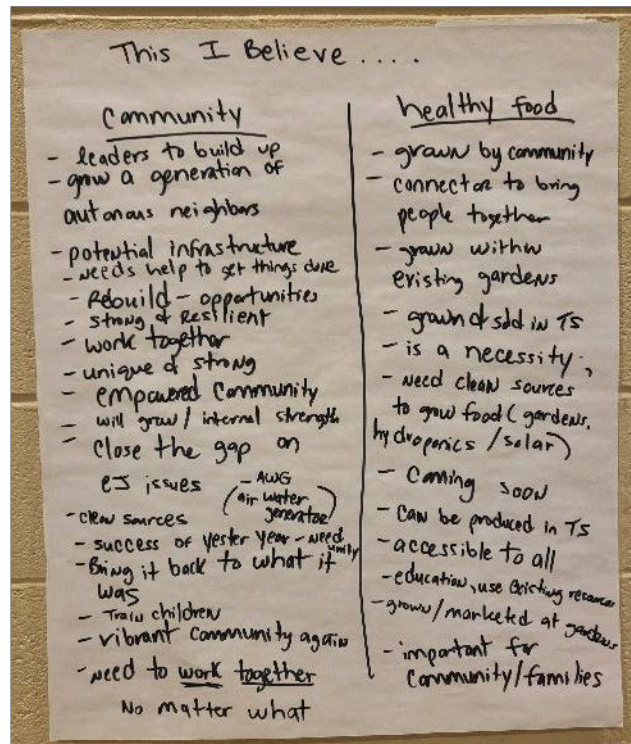 This I Believe ....
Community
- leaders to build up
- grow a generation of
autonous neighbors
- potential infrastructure
- needs help to get things done
- Rebuild - opportunities
- strong & Resilient
- work together
- unique & strong
- empowered Community
- will grow / internal strength
- Close the gap on
EJ issues
- AWG
(air water
generator)
- clean sources
- success of yester year - need
unity
- Bring it back to what it
was
- Train children
- vibrant Community again
- need to work together
No matter what
healthy food
- grown by community
- connector to bring
people together
- grown within
existing gardens
- grown & sold in TS
- is a necessity;
- need clean sources
to grow food (gardens,
hydroponics / solar)
- Coming soon
- Can be produced in TS
- accessible to all
- education, use existing resources
- grown/marketed at gardens
- important for
Community/families